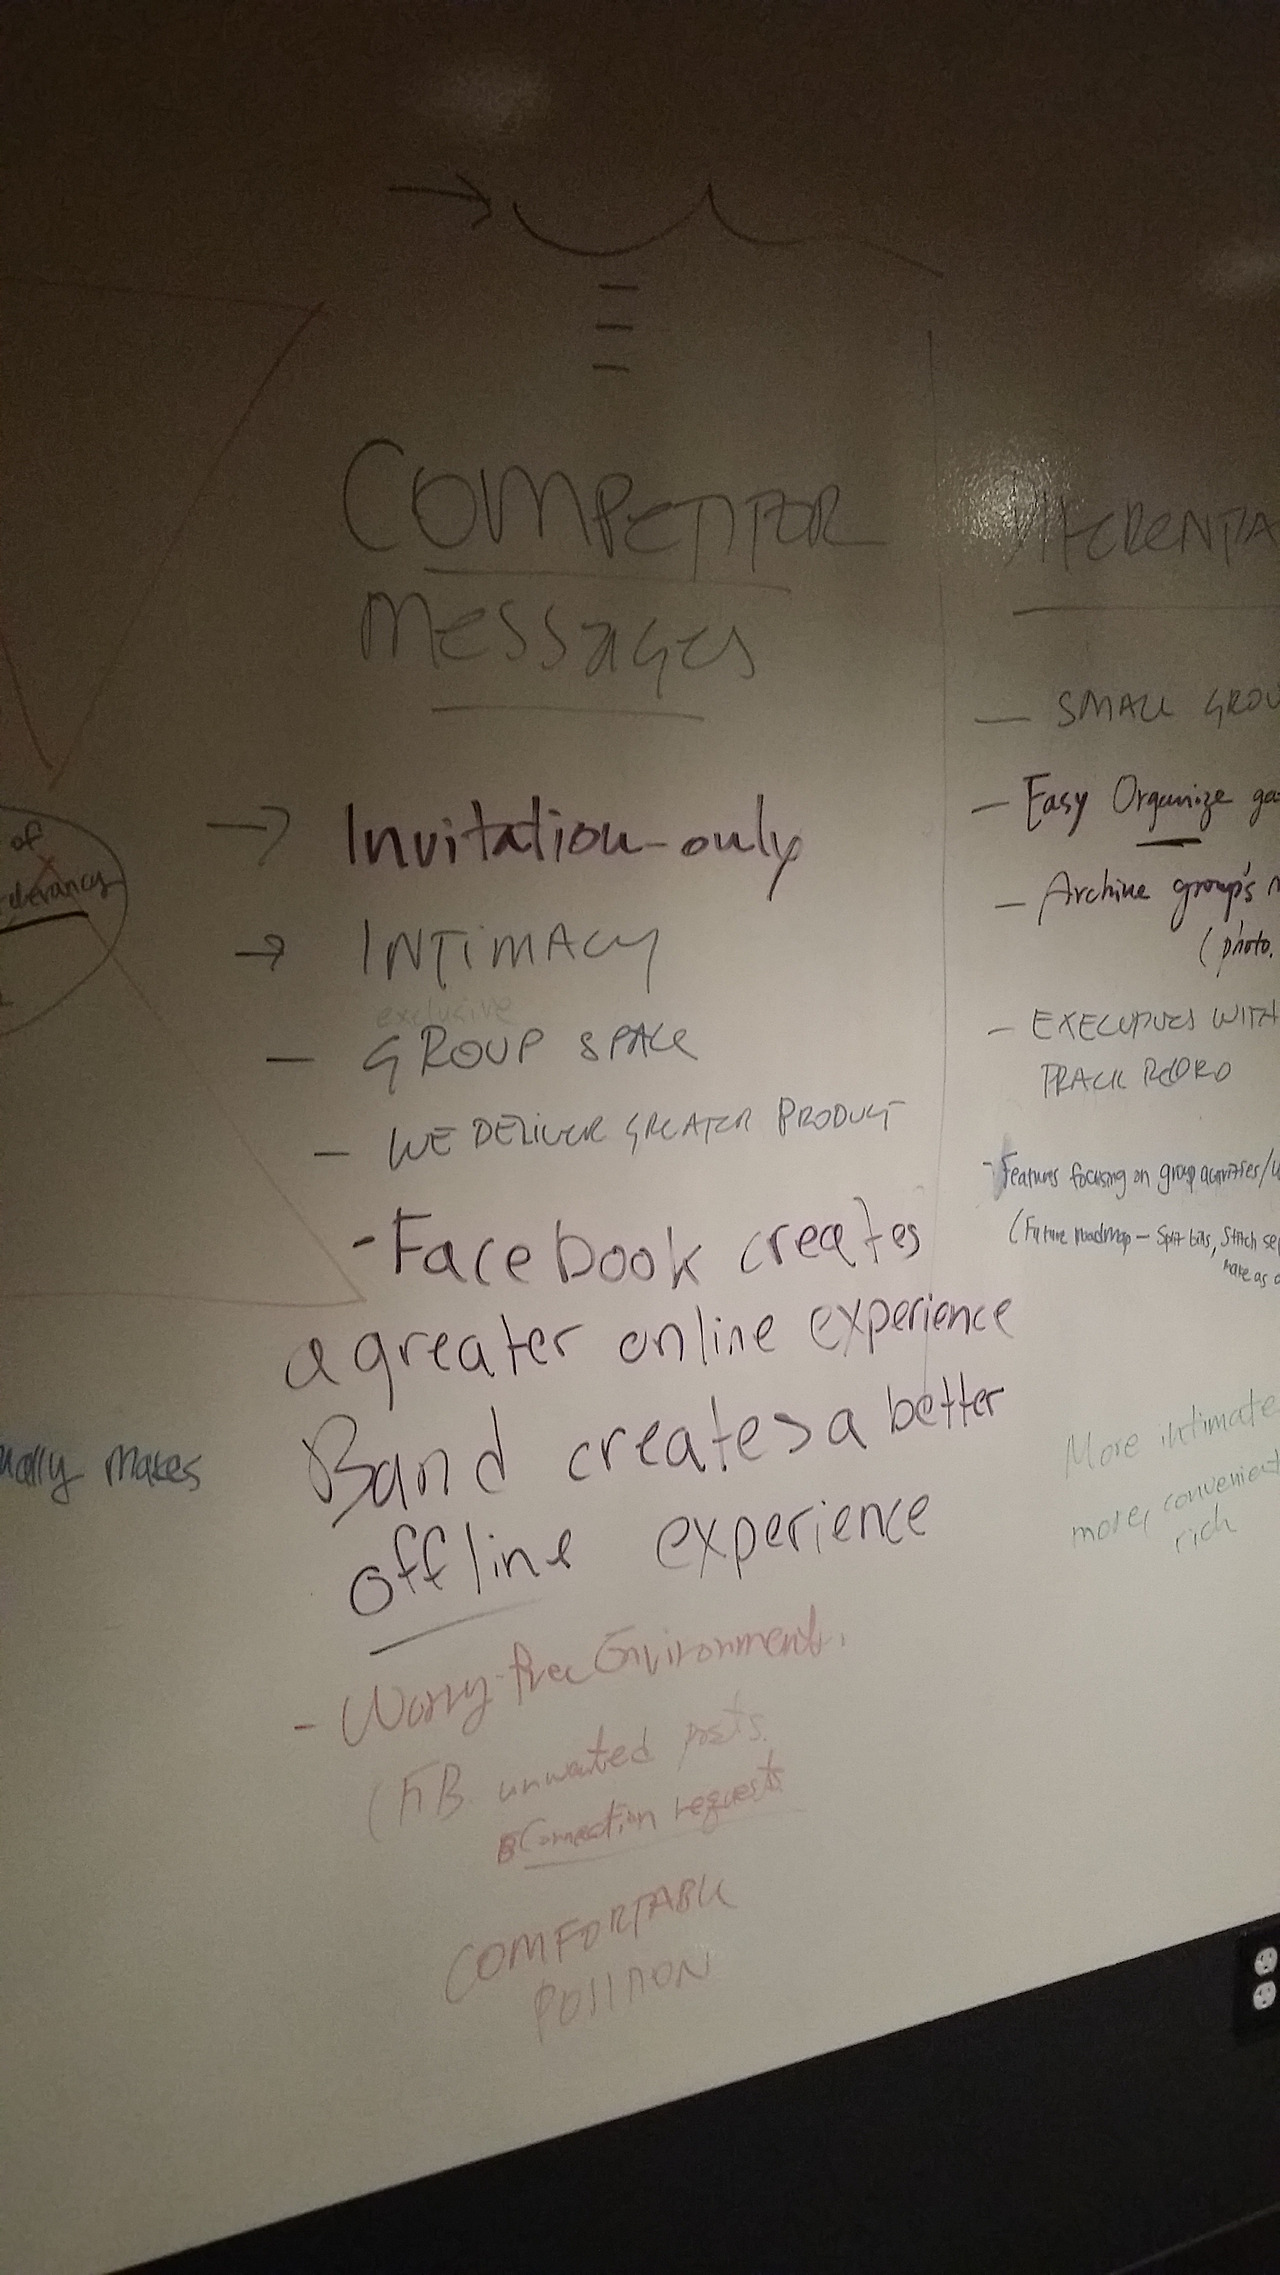 COMPETITOR
MESSAGES
→ Invitation-only
→ INTIMACY
exclusive
— GROUP SPACE
— WE DELIVER GREATER PRODUCT
- Facebook creates
a greater online experience
Band creates a better
offline experience
- Worry-free Environment.
(FB. unwanted posts.
Connection requests
COMFORTABLE
POSITION
— SMALL GROU
— Easy Organize ga
— Archive group's
(photo.
— EXECUTIVES WITH
TRACK RECORD
- Features focusing on group activities/
(Future roadmap — Split bills, Stitch se
make as
More intimate
more, convenient
rich
of
elevancy
ually makes